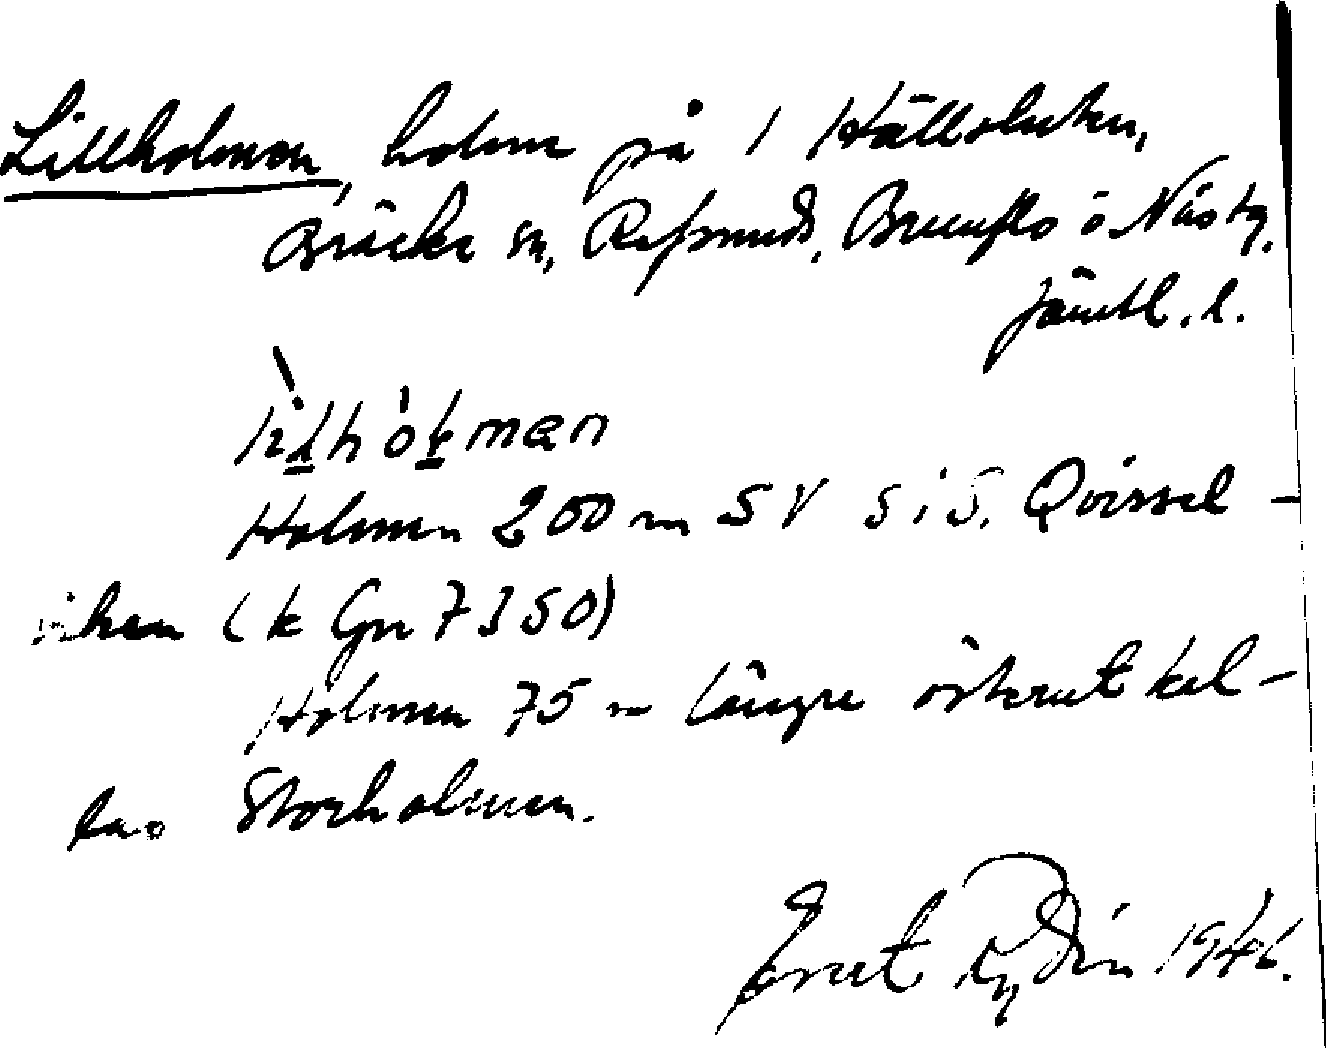 Lillholmen, holme på 1 Hällsluten,
Bräcke sn, Refsunds, Brunflo o Näs tg,
Jämtl. l.
lilhòlman
Holmen 200 m SV s i S. Qvissel-
viken (k Gn 7350)
Holmen 75 m längre österut kal-
las Storholmen.
Ernst Rydén 1946.